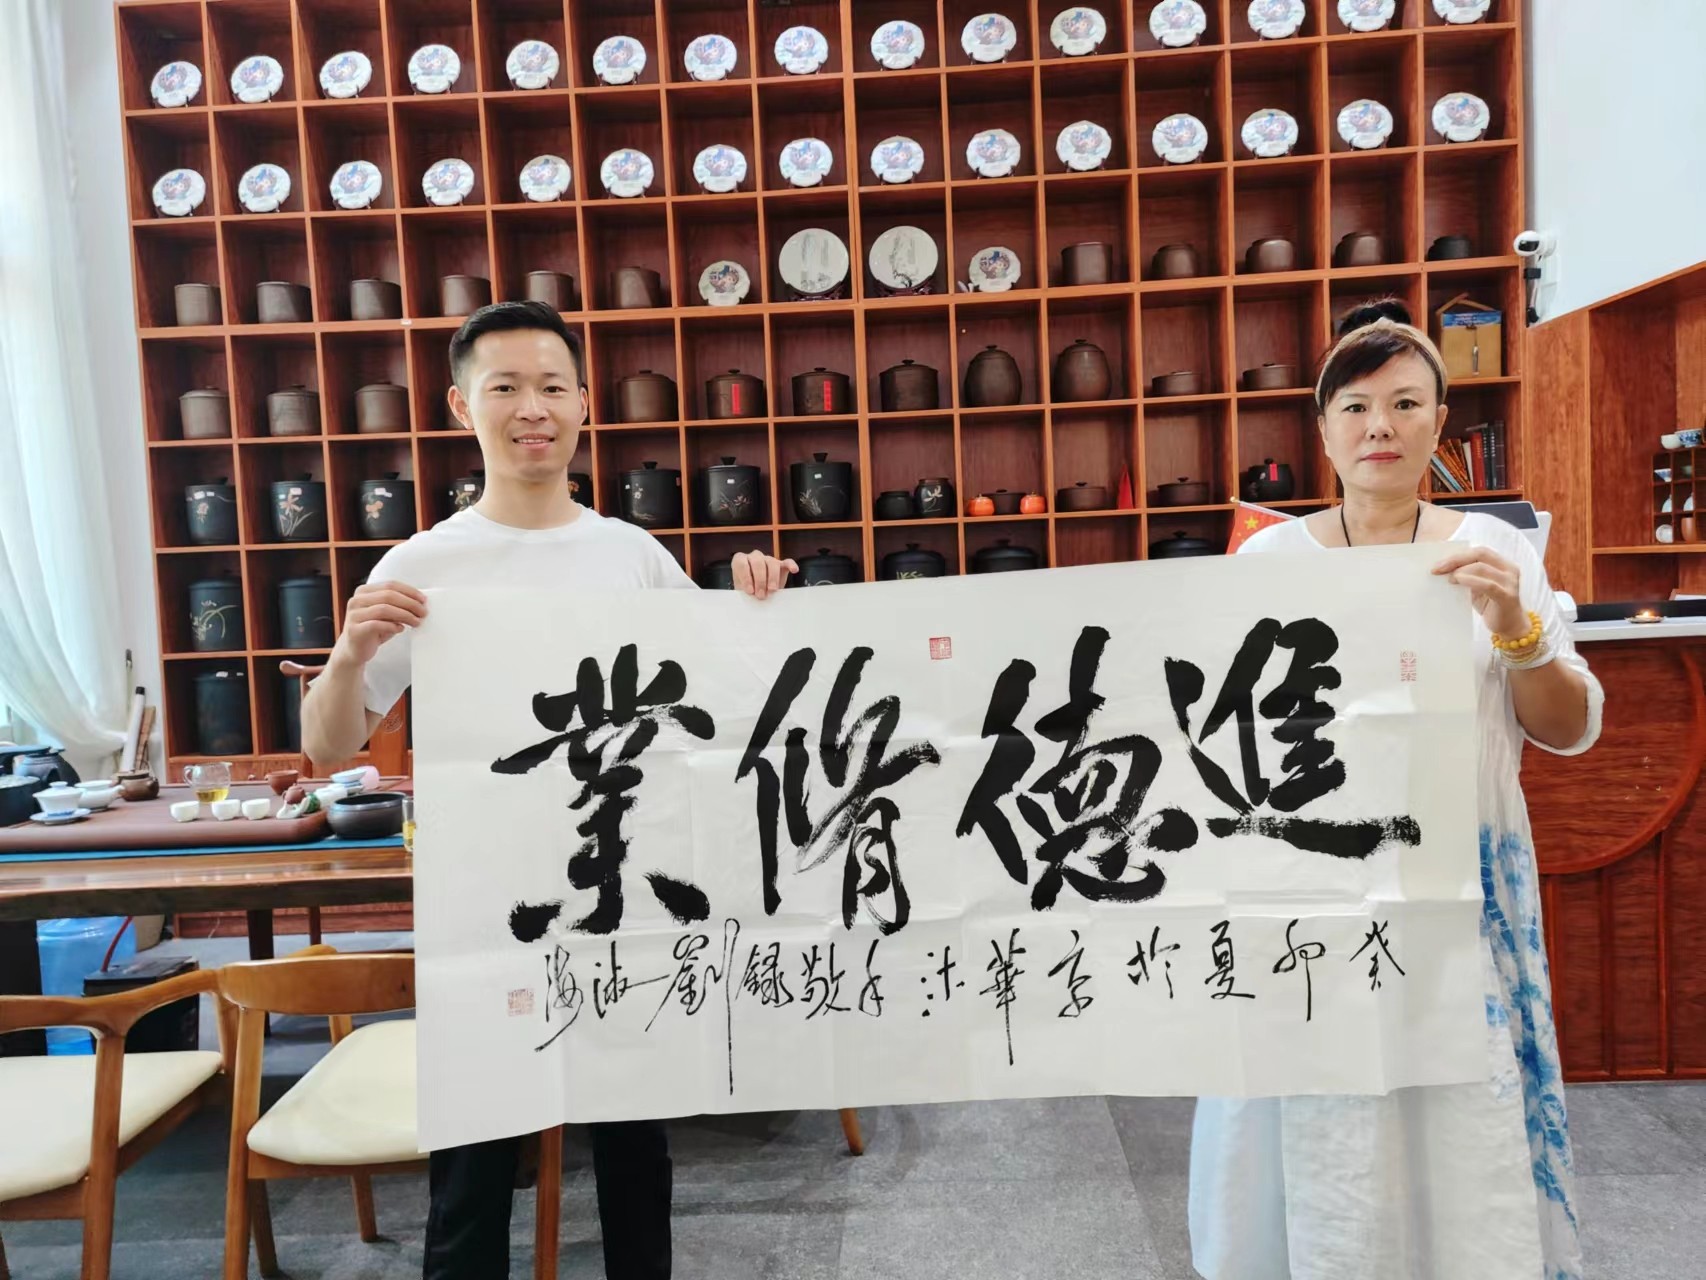 進德脩業
癸卯夏於京華沐手敬録劉淑海